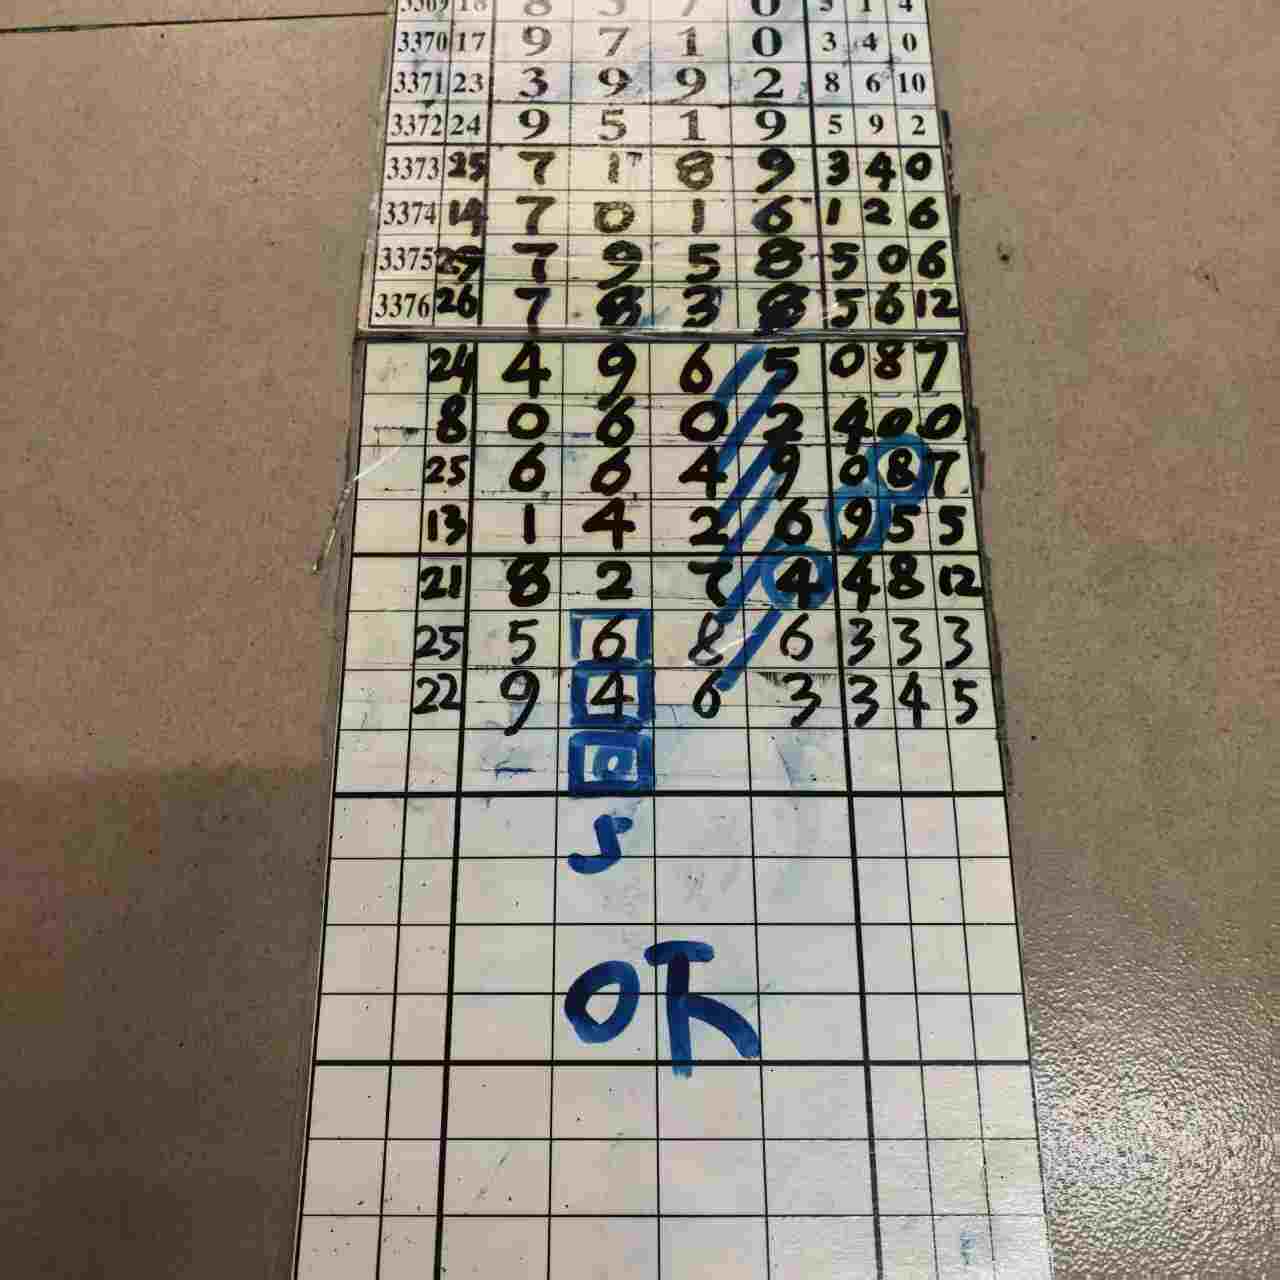 3369 18 8 3 7 0 5 1 4
3370 17 9 7 1 0 3 4 0
3371 23 3 9 9 2 8 6 10
3372 24 9 5 1 9 5 9 2
3373 25 7 1 8 9 3 4 0
3374 14 7 0 1 6 1 2 6
3375 29 7 9 5 8 5 0 6
3376 26 7 8 3 8 5 6 12
24 4 9 6 5 0 8 7
8 0 6 0 2 4 0 0
25 6 6 4 9 0 8 7
13 1 4 2 6 9 5 5
21 8 2 7 4 4 8 12
25 5 6 8 6 3 3 3
22 9 4 6 3 3 4 5
0
5
OK